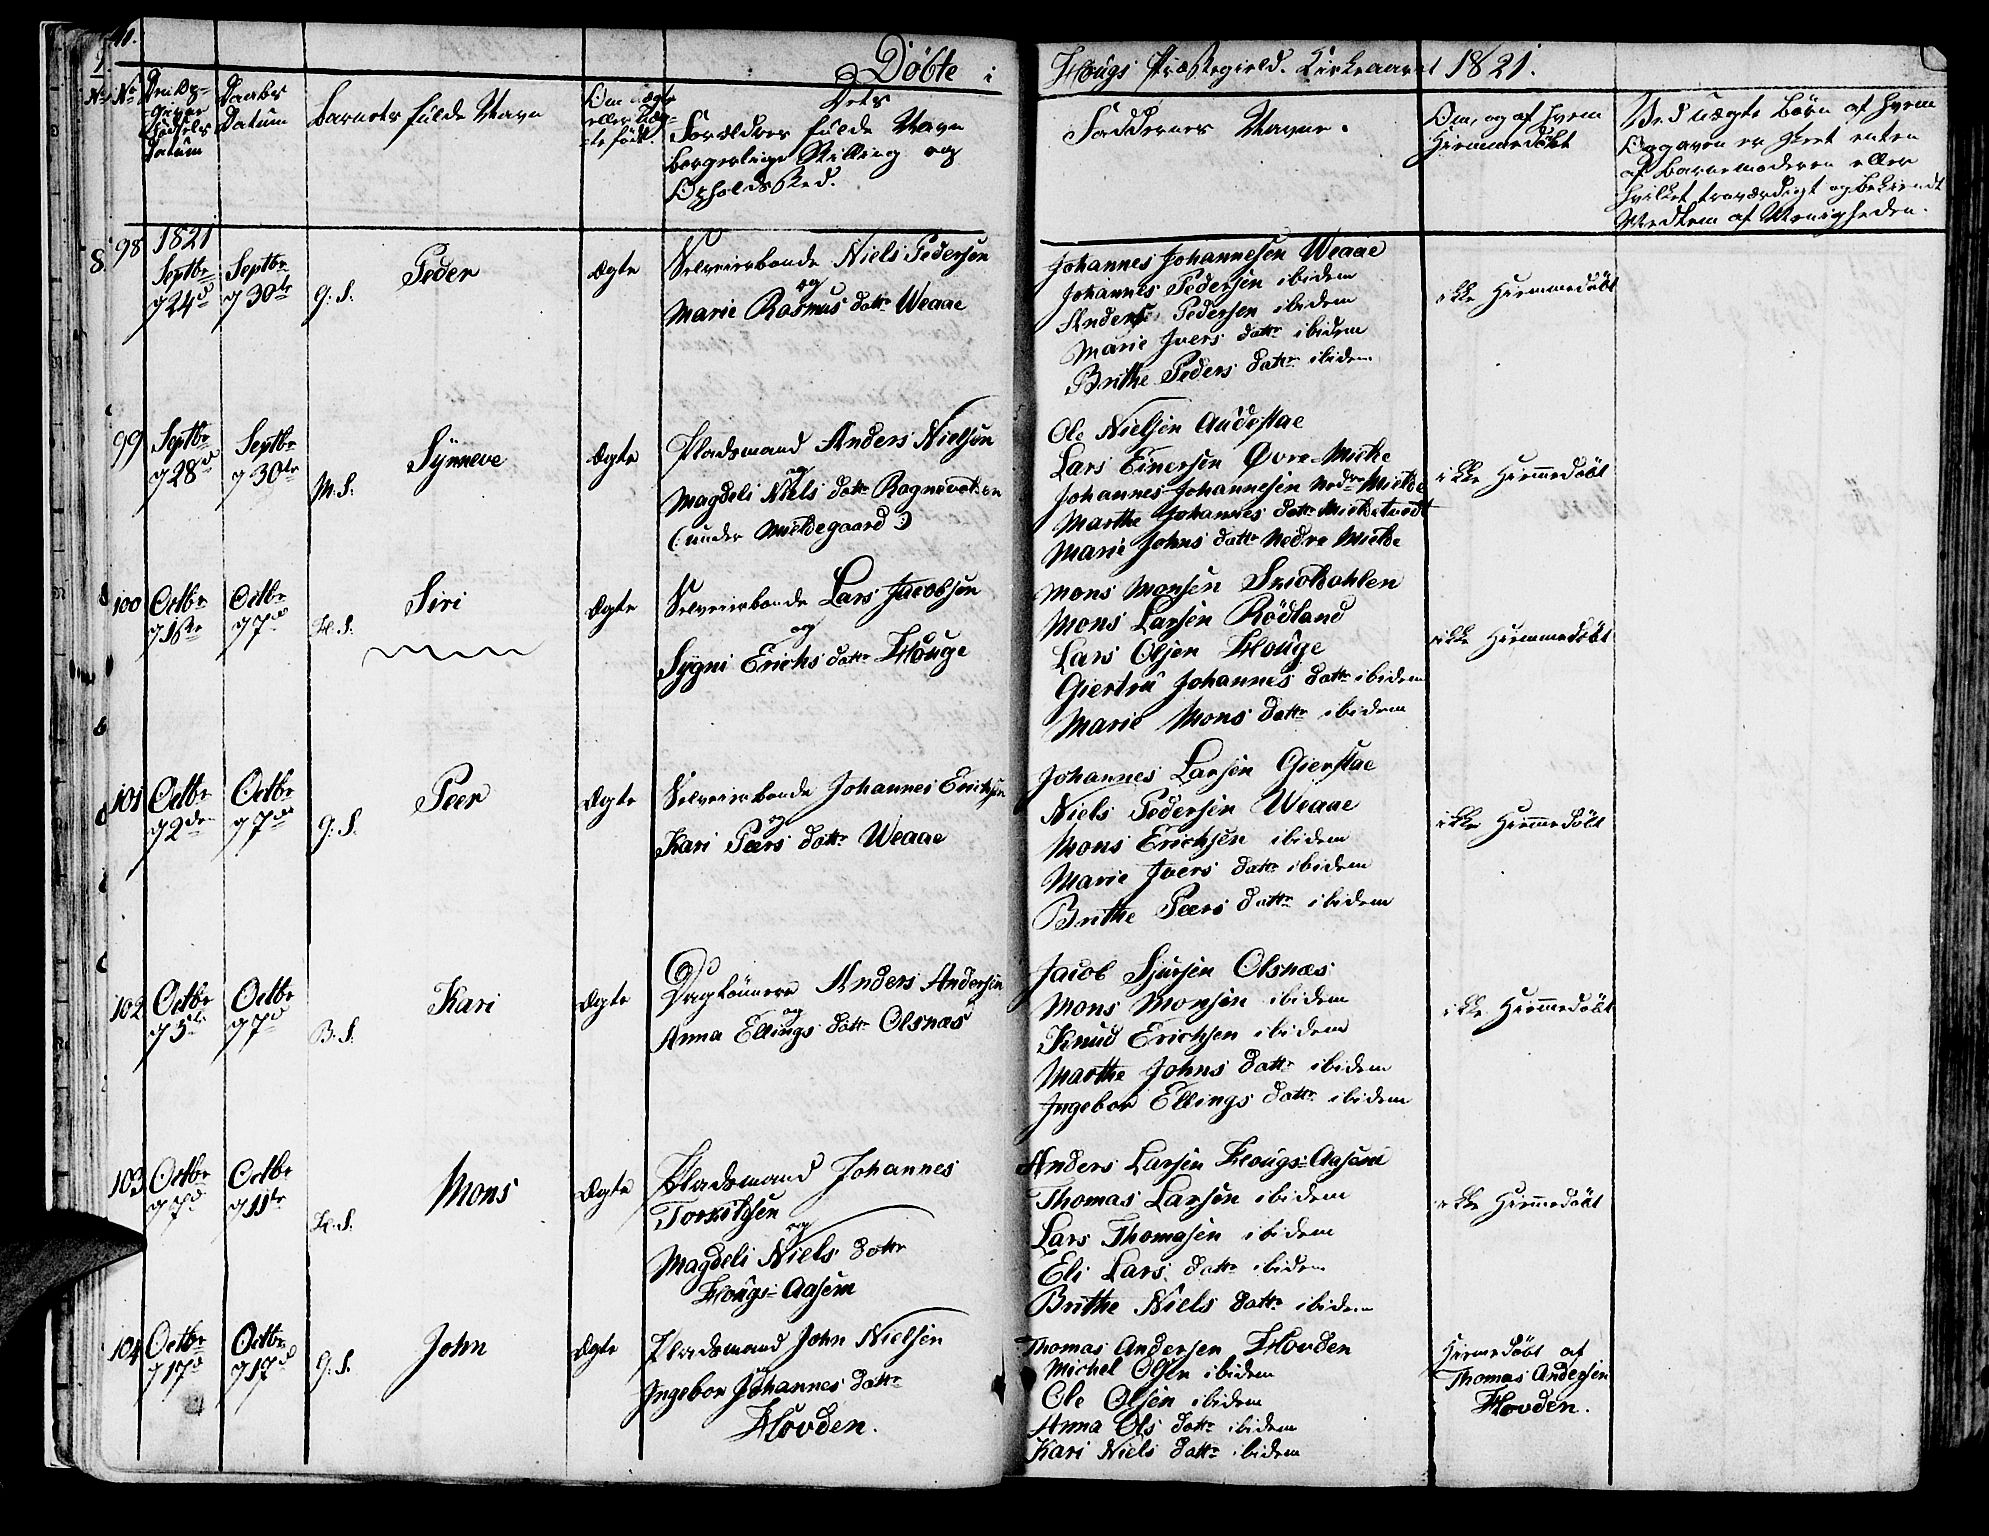 Døbte i Hougs Præstegield. Kirkeaaret 1821.
No
Datum
Daabs Datum
Barnets fulde Navn
Om ægte eller uægte født.
Dets Forældres fulde Navn borgerlige Stilling og Opholdssted.
Faddernes Navne.
Om, og af hvem Hiemmedøbt
Ved uægte Børn af hvem Opgaven er skeet enten af Barnemoderen eller hvilket troværdigt og bekiendt Medlem af Menigheden.
1821
98 Septbr 24d Septbr 30te G. S. Peder ægte
Selveierbonde Niels Pedersen
og
Marie Rasmus dattr Weaae
Johannes Johannesen Weaae
Johannes Pedersen ibidem
Anders Pedersen ibidem
Marie Ivers dattr ibidem
Brithe Peders dattr ibidem
ikke Hiemmedøbt
99 Septbr 28d Septbr 30te M. S. Synneve ægte
Pladsmand Anders Nielsen
og
Magdeli Niels dattr
(: under Mieldegaard :)
Ole Nielsen
Lars Einersen Øvre-Mielde
Johannes Johannesen Nedre Mielde
Marthe Johannes dattr
Marie Johns dattr Nedre Mielde
ikke Hiemmedøbt
100 Octbr 1ste Octbr 7d H. S. Siri ægte
Selveierbonde Lars Jacobsen
og
Sygni Erichs dattr Houge
Mons Monsen
Mons Larsen Rødland
Lars Olsen Houge
Giertru Johannes dattr ibidem
Marie Mons dattr ibidem
ikke Hiemmedøbt
101 Octbr 2den Octbr 7de G. S. Peer ægte
Selveierbonde Johannes Erichsen
og
Kari Peers dattr Weaae
Johannes Larsen Gierstae
Niels Pedersen Weaae
Mons Erichsen ibidem
Marie Ivers dattr ibidem
Brithe Peers dattr ibidem
ikke Hiemmedøbt
102 Octbr 5te Octbr 7d B. S. Kari ægte
Daglønnere Anders Andersen
og
Anna Ellings dattr Olsnæs
Jacob Sjursen Olsnæs
Mons Monsen ibidem
Knud Erichsen ibidem
Marthe Johns dattr ibidem
Ingebor Ellings dattr ibidem
ikke Hiemmedøbt
103 Octbr 7d Octbr 11te H. S. Mons ægte
Pladsmand Johannes
Torkildsen
og
Magdeli Niels dattr
Hougs-Aasem
Anders Larsen Hougs-Aasem
Thomas Larsen ibidem
Lars Thomasen ibidem
Eli Lars dattr ibidem
Brithe Niels dattr ibidem
ikke Hiemmedøbt
104 Octbr 17d Octbr 17d G. S. John ægte
Pladsmand John Nielsen
og
Ingebor Johannes dattr
Hovden.
Thomas Andersen Hovden
Michel Olsen ibidem
Ole Olsen ibidem
Anna Ols dattr ibidem
Kari Niels dattr ibidem
Hiemedøbt af
Thomas Andersen
Hovden.